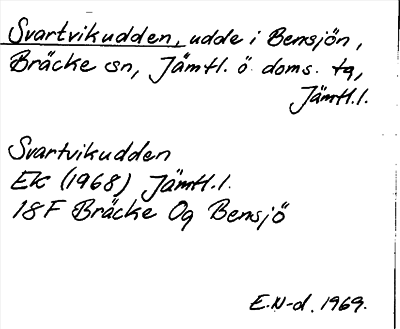 Svartvikudden, udde i Bensjön,
Bräcke sn, Jämtl. ö. doms. tg,
Jämtl.l.
Svartvikudden
EK (1968) Jämtl.l.
18F Bräcke Og Bensjö
E.N-d. 1969.